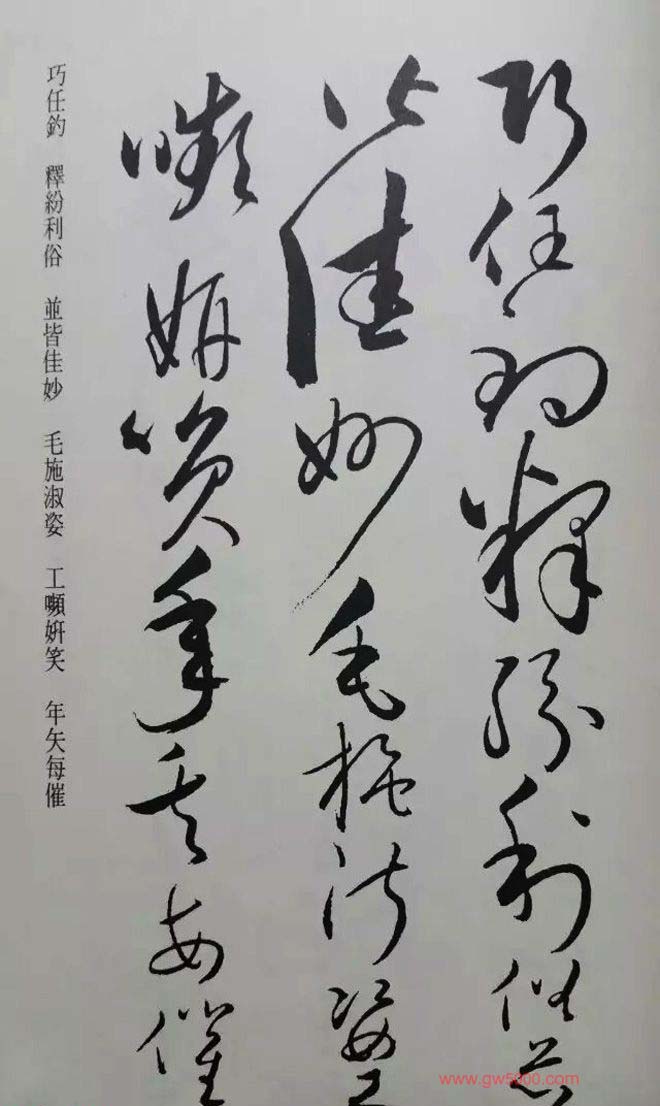 巧任釣釋紛利俗並
皆佳妙毛施淑姿工
嚬妍笑年矢每催
巧任釣　釋紛利俗　並皆佳妙　毛施淑姿　工嚬妍笑　年矢每催
www.gw5000.com